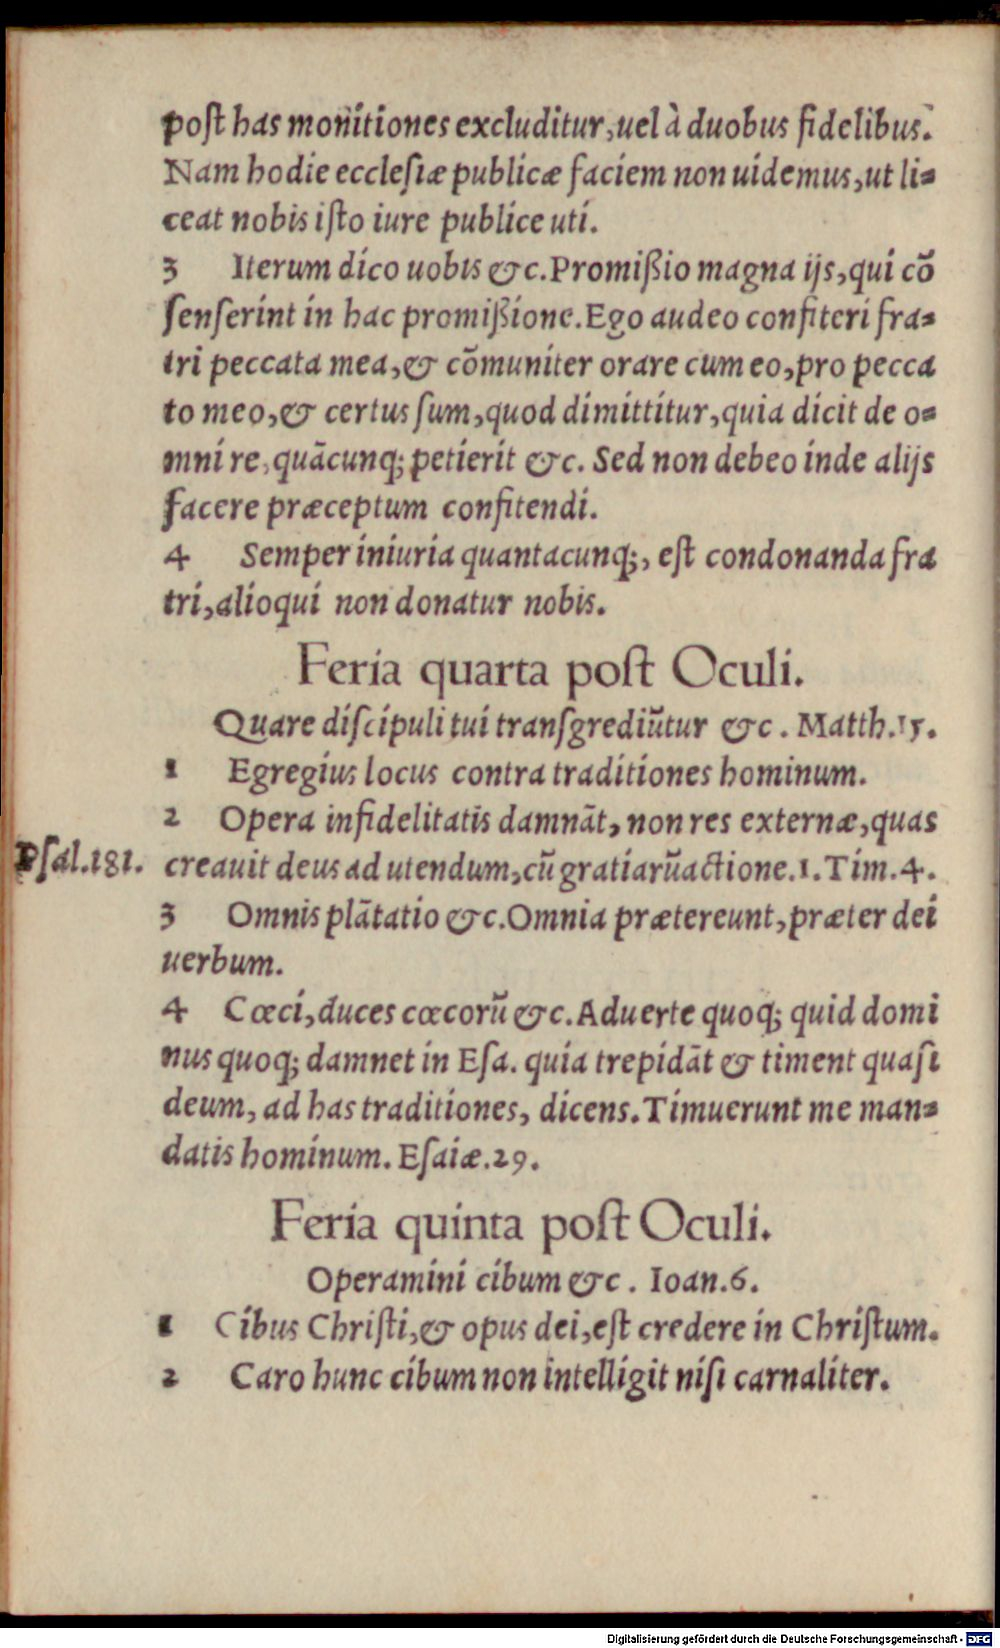 poſt has monitiones excluditur, uel à duobus fidelibus.
Nam hodie eccleſiæ publicæ faciem non uidemus, ut li-
ceat nobis iſto iure publice uti.
3 Iterum dico uobis &c. Promiſſio magna ijs, qui cõ
ſenſerint in hac promiſſione. Ego audeo confiteri fra-
tri peccata mea, & cõmuniter orare cum eo, pro pecca
to meo, & certus ſum, quod dimittitur, quia dicit de o-
mni re, quãcunq; petierit &c. Sed non debeo inde alijs
facere præceptum confitendi.
4 Semper iniuria quantacunq;, eſt condonanda fra
tri, alioqui non donatur nobis.
Feria quarta poſt Oculi.
Quare diſcipuli tui tranſgrediũtur &c. Matth. 15.
1 Egregius locus contra traditiones hominum.
2 Opera infidelitatis damnãt, non res externæ, quas
Pſal. 181. creauit deus ad utendum, cũ gratiarũ actione. 1. Tim. 4.
3 Omnis plãtatio &c. Omnia prætereunt, præter dei
uerbum.
4 Cœci, duces cœcorũ &c. Aduerte quoq; quid domi
nus quoq; damnet in Eſa. quia trepidãt & timent quaſi
deum, ad has traditiones, dicens. Timuerunt me man-
datis hominum. Eſaiæ. 29.
Feria quinta poſt Oculi.
Operamini cibum &c. Ioan. 6.
1 Cibus Chriſti, & opus dei, eſt credere in Chriſtum.
2 Caro hunc cibum non intelligit niſi carnaliter.
Digitalisierung gefördert durch die Deutsche Forschungsgemeinschaft - DFG